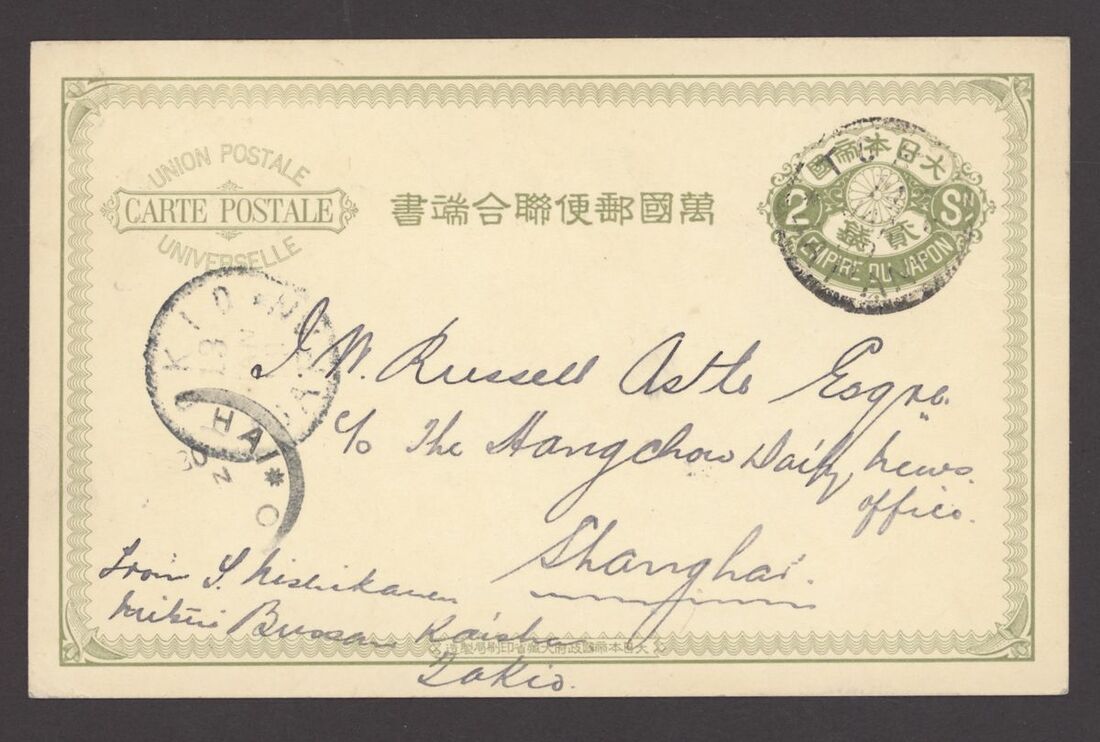 UNION POSTALE
CARTE POSTALE
UNIVERSELLE
書端合聯便郵國萬
國帝本日大
2 Sn
錢貳
EMPIRE DU JAPON
J. W. Russell Astle Esqre.
c/o The Hangchow Daily News
office.
Shanghai.
From S. Nishikawa
Mitsui Bussan Kaisha
Tokio.
造製局刷印省藏大府政國帝本日大
HAI